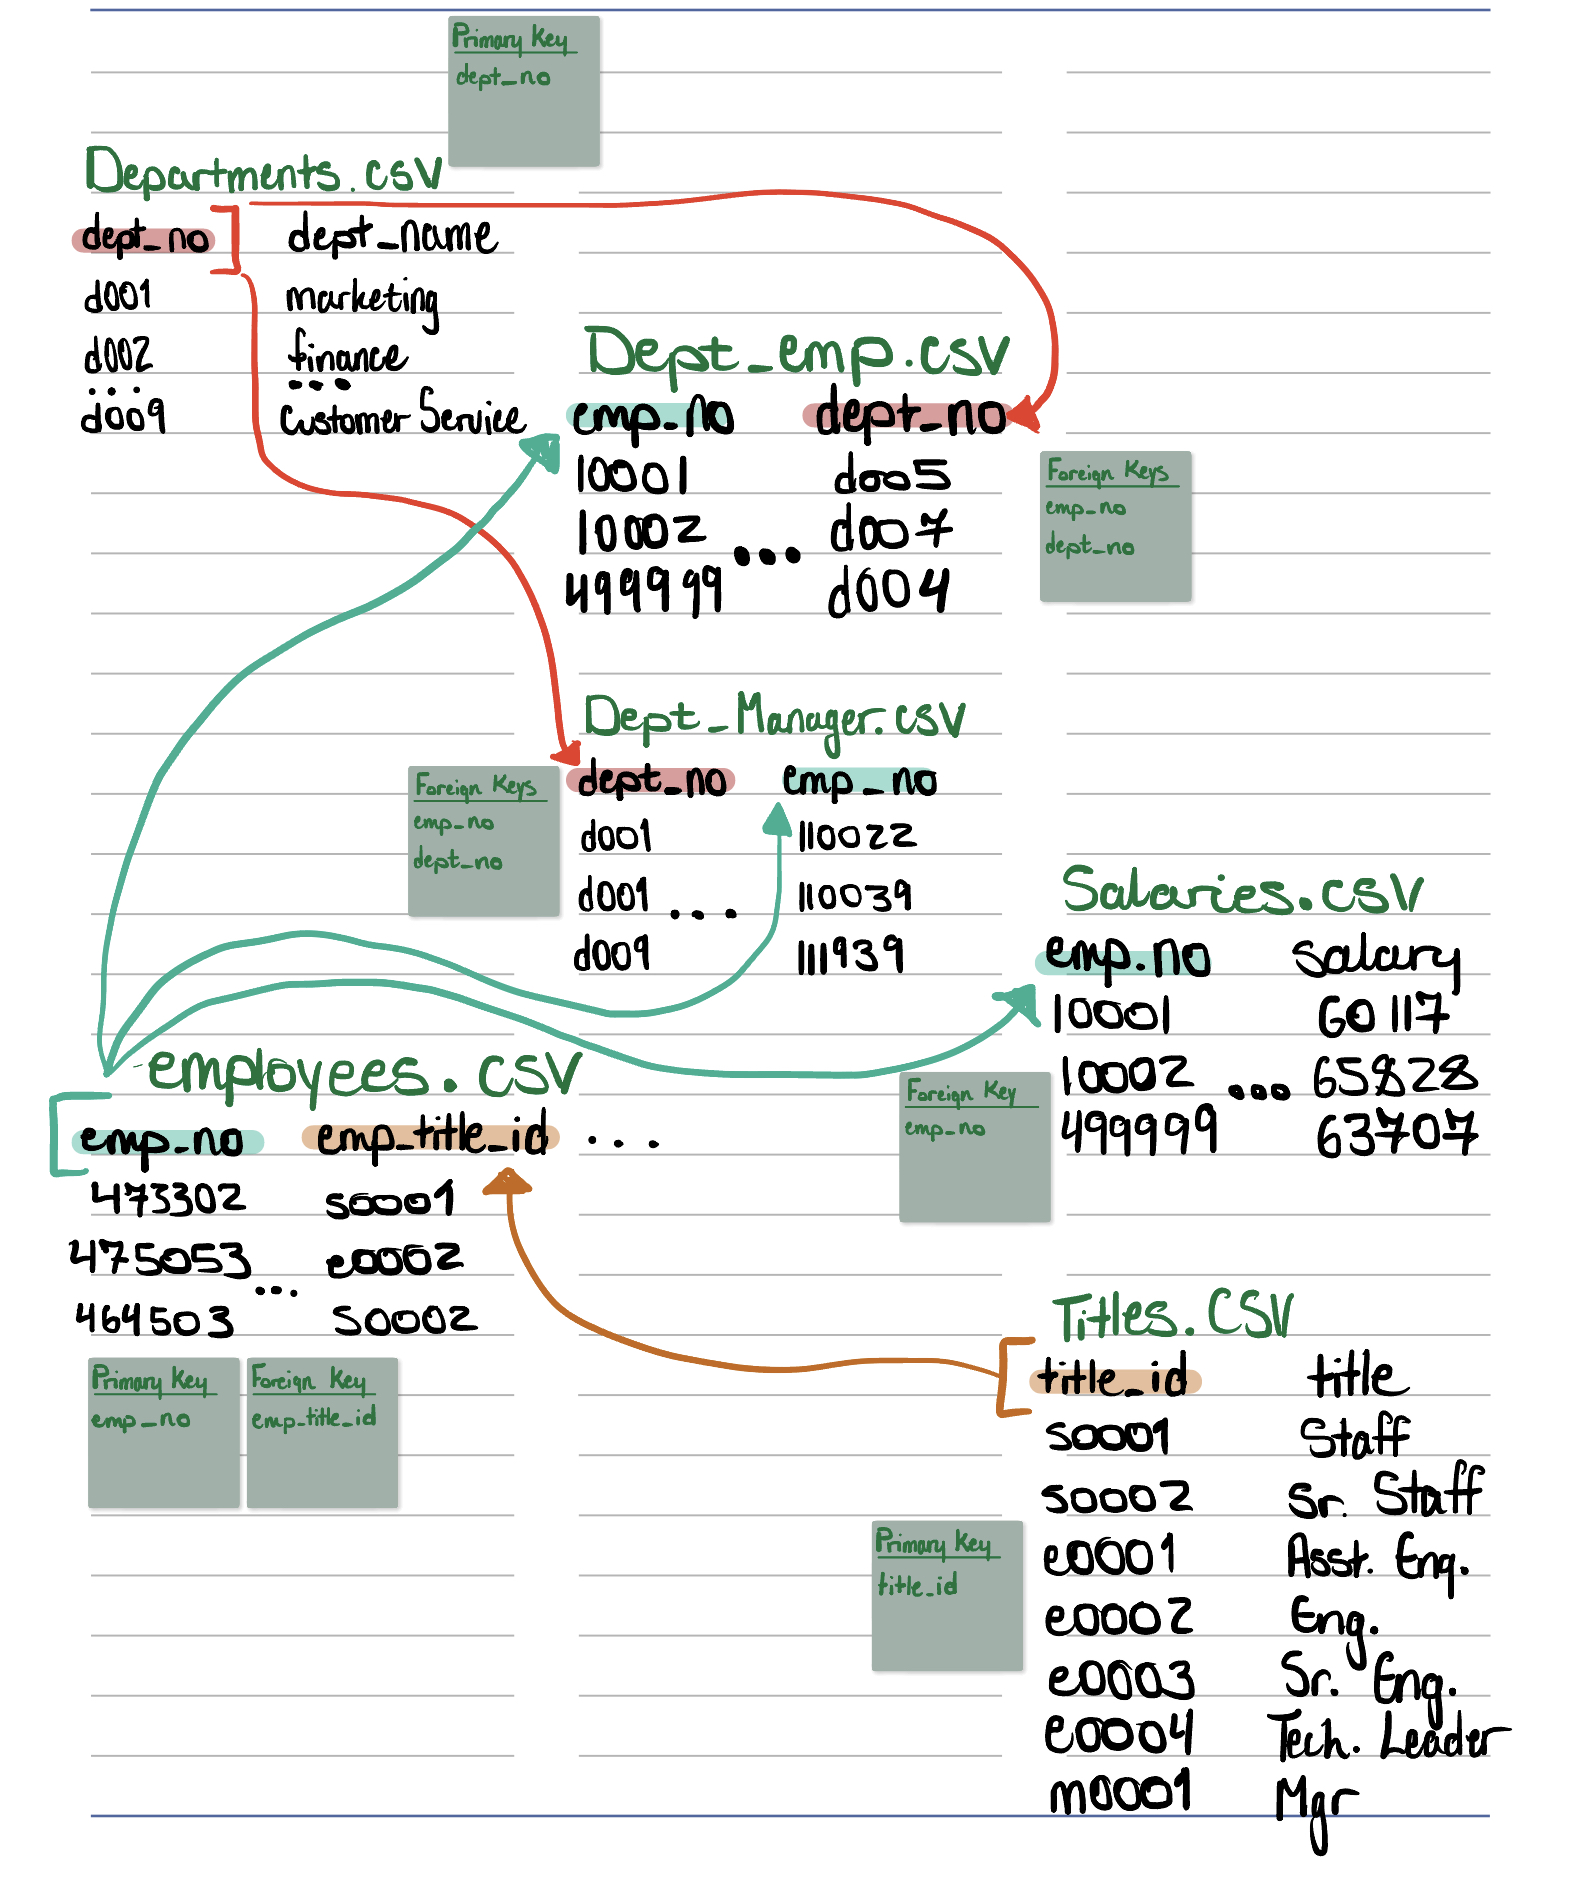 Primary Key
dept_no
Departments.csv
dept_no dept_name
d001 marketing
d002 finance
... ...
d009 Customer Service
Dept_emp.csv
emp_no dept_no
10001 d005
10002 ... d007
499999 d004
Foreign Keys
emp_no
dept_no
Dept_Manager.csv
dept_no emp_no
d001 110022
d001 ... 110039
d009 111939
Foreign Keys
emp_no
dept_no
Salaries.csv
emp.no salary
10001 60117
10002 ... 65828
499999 63707
Foreign Key
emp_no
employees.csv
emp_no emp_title_id ...
473302 s0001
475053 ... e0002
464503 s0002
Primary Key
emp_no
Foreign Key
emp_title_id
Titles.csv
title_id title
s0001 Staff
s0002 Sr. Staff
e0001 Asst. Eng.
e0002 Eng.
e0003 Sr. Eng.
e0004 Tech. Leader
m0001 Mgr
Primary Key
title_id